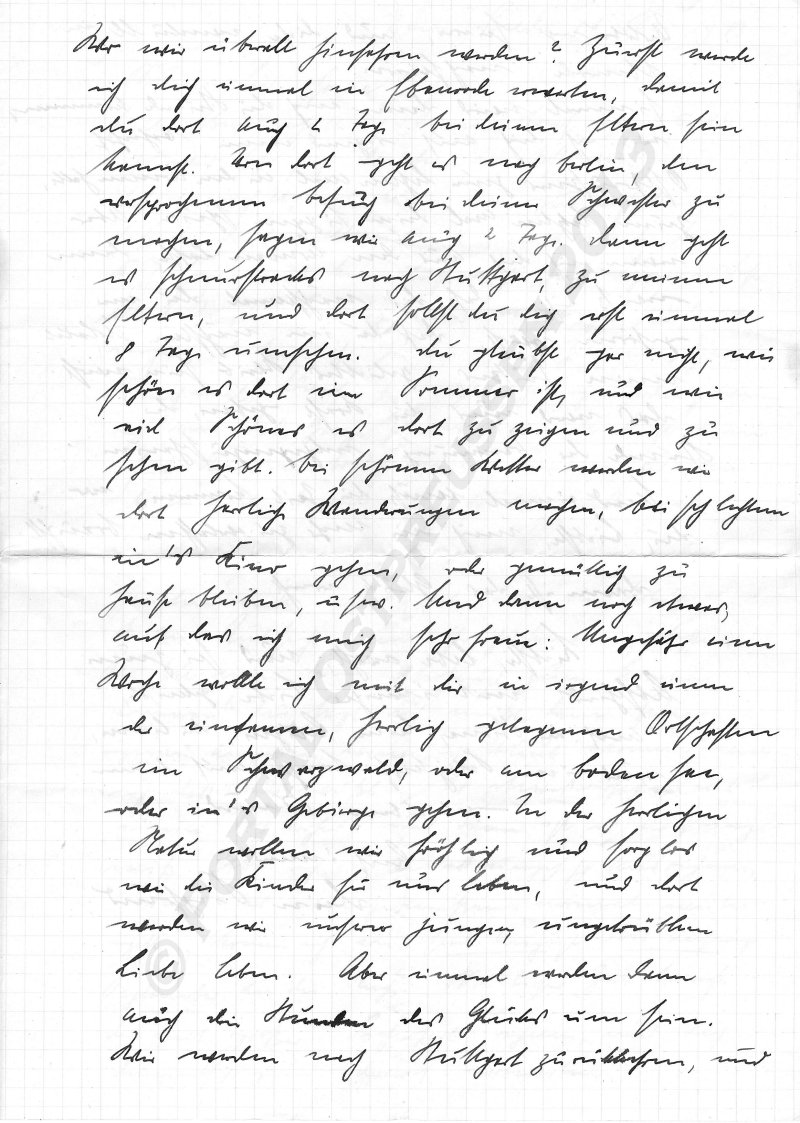 Wo wir überall hinfahren werden? Zuerst werde
ich dich einmal in Ebenrode erwarten, damit
du dort auch 2 Tage bei deinen Eltern sein
kannst. Von dort geht es nach Berlin, den
versprochenen Besuch bei deiner Schwester zu
machen, sagen wir auch 2 Tage. Dann geht
es schnurstracks nach Stuttgart, zu meinen
Eltern, und dort sollst du dich erst einmal
8 Tage umsehen. Du glaubst gar nicht, wie
schön es dort im Sommer ist, und wie
viel Schönes es dort zu zeigen und zu
sehen gibt. Bei schönem Wetter werden wir
dort herrliche Wanderungen machen, bei schlechtem
in's Kino gehen, oder gemütlich zu
Hause bleiben, usw. Und dann noch etwas,
auf das ich mich sehr freue: Ungefähr eine
Woche wollte ich mit dir in irgend einen
der einsamen, herrlich gelegenen Ortschaften
im Schwarzwald, oder am Bodensee,
oder in's Gebirge gehen. In der herrlichen
Natur wollen wir fröhlich und sorglos
wie die Kinder für uns leben, und dort
werden wir unserer jungen, ungetrübten
Liebe leben. Aber einmal werden dann
auch die Stunden des Glücks um sein.
Wir werden nach Stuttgart zurückkehren, und
© PORTAL-OSTPREUSSEN 2013